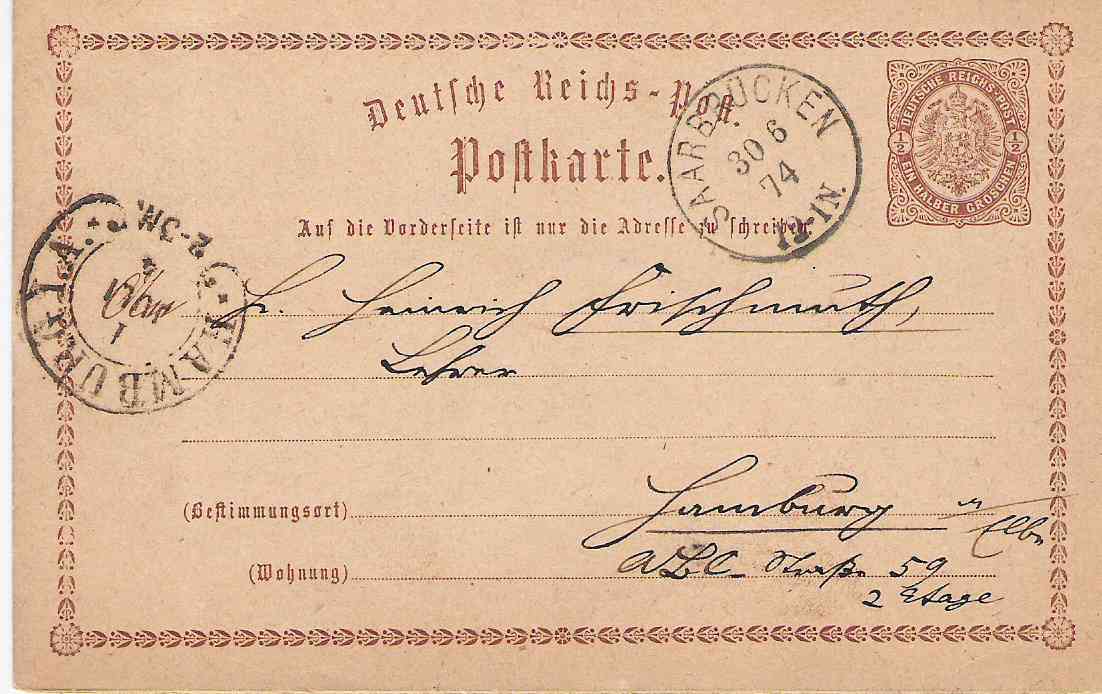 Deutsche Reichs-Post.
Postkarte.
Auf die Vorderseite ist nur die Adresse zu schreiben.
DEUTSCHE REICHS-POST
1/2 1/2
EIN HALBER GROSCHEN
SAARBRÜCKEN
30 6
74
12-1N.
HAMBURG I.A.
1
H. Heinrich Frischmuth,
Lehrer
(Bestimmungsort) Hamburg a Elbe
(Wohnung) ABC Straße 59
2 Etage